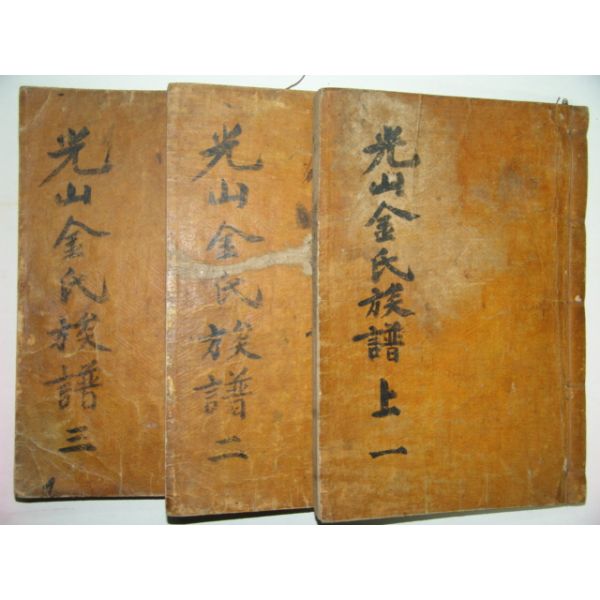 光山金氏族譜 上 一
光山金氏族譜 二
光山金氏族譜 三